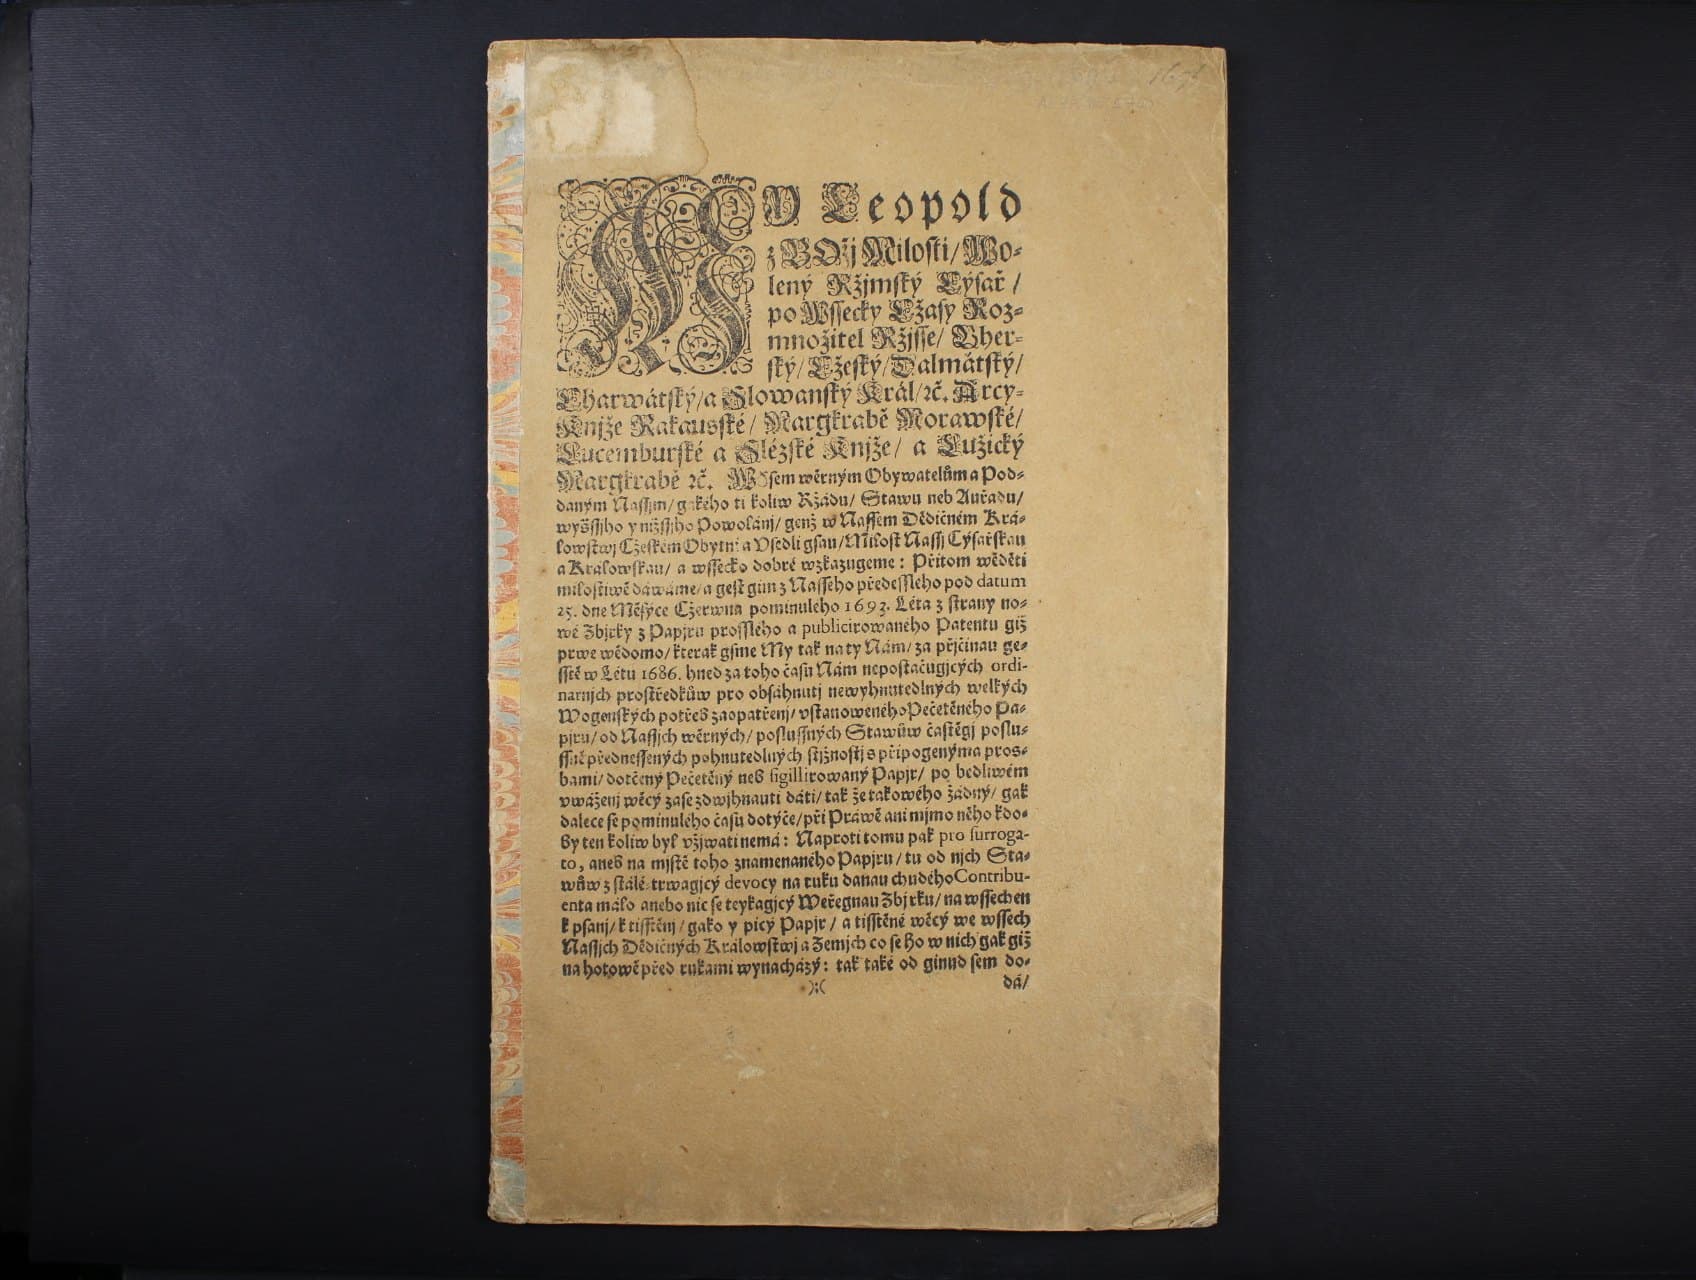 MY Leopold
z BOžj Milosti/ Wo-
lený Ržjmský Cýsař /
po Wssecky Cžasy Roz-
množitel Ržjsse/ Vher-
ský/ Cžeský/ Dalmátský/
Charwátský/ a Slowanský Král/ ꝛč. Arcy-
Knjže Rakauské/ Margkrabě Morawské/
Lucemburské a Slézské Knjže/ a Lužický
Margkrabě ꝛč. Wssem wěrným Obywatelům a Pod-
daným Nassjm/ gakého ti koliw Ržádu/ Stawu neb Auřadu/
wyšssjho y nižssjho Powolánj/ genž w Nassem Dědičném Krá-
lowstwj Cžeském Obytni a Vsedli gsau/ Milost Nassj Cýsařskau
a Králowskau/ a wssecko dobré wzkazugeme: Přitom wěděti
milostiwě dáwáme/ a gest gim z Nasseho předessleho pod datum
25. dne Měsýce Cžerwna pominulého 1693. Léta z strany no-
wé Zbjrky z Papjru prossleho a publicirowaného Patentu giž
prwe wědomo/ kterak gsme My tak na ty Nám/ za přjčinau ge-
sstě w Létu 1686. hned za toho času Nám nepostačugjcých ordi-
narnjch prostředkůw pro obsáhnutj newyhnutedlných welkých
Wogenských potřeb zaopatřenj/ vstanoweného Pečetěného Pa-
pjru/ od Nassjch wěrných/ poslussných Stawůw častěgj poslu-
ssně přednessených pohnutedlných stjžnostj s připogenýma pros-
bami/ dotčený Pečetěný neb sigillirowaný Papjr/ po bedliwém
vwáženj wěcý zase zdwjhnauti dáti/ tak že takowého žádný/ gak
dalece se pominulého času dotýče/ při Práwě ani mjmo něho kdo-
by ten koliw byl vžjwati nemá: Naproti tomu pak pro surroga-
to, aneb na mjstě toho znamenaného Papjru / tu od njch Sta-
wůw z stále-trwagjcý devocy na ruku danau chudého Contribu-
enta málo anebo nic se teykagjcý Weřegnau Zbjrku/ na wssechen
k psanj/ k tisstěnj / gako y picý Papjr / a tisstěné wěcý we wssech
Nassjch Dědičných Králowstwj a Zemjch co se ho w nich gak giž
na hotowě před rukami wynacházý: tak také od ginud sem do-
):( dá/